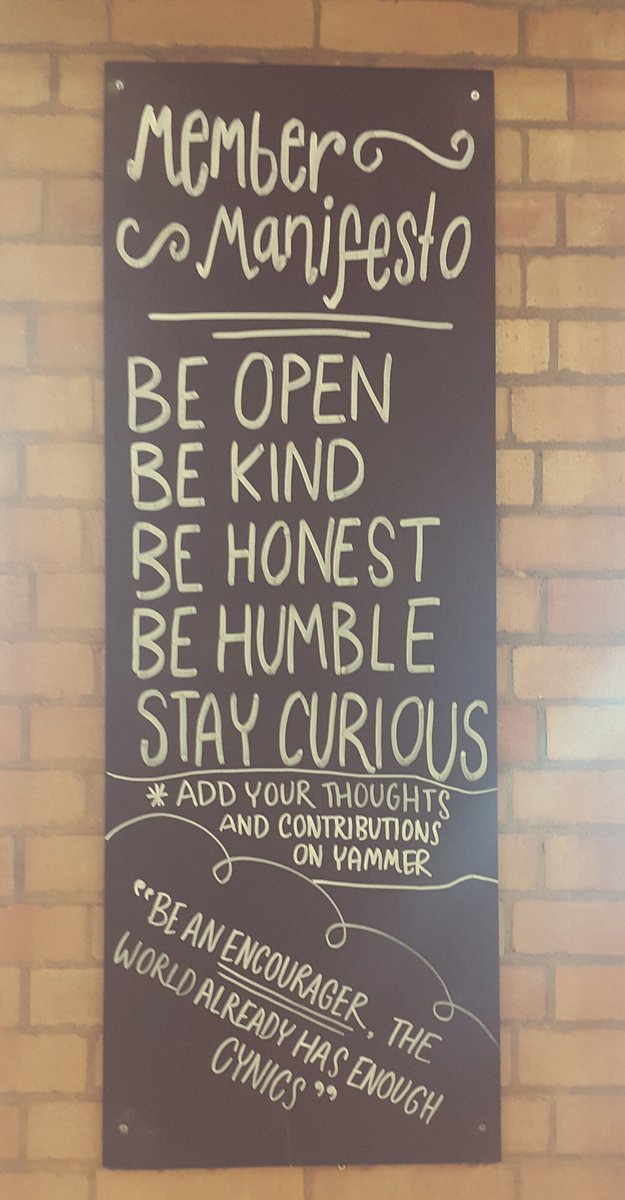 Member
Manifesto
BE OPEN
BE KIND
BE HONEST
BE HUMBLE
STAY CURIOUS
* ADD YOUR THOUGHTS
AND CONTRIBUTIONS
ON YAMMER
"BE AN ENCOURAGER, THE
WORLD ALREADY HAS ENOUGH
CYNICS"